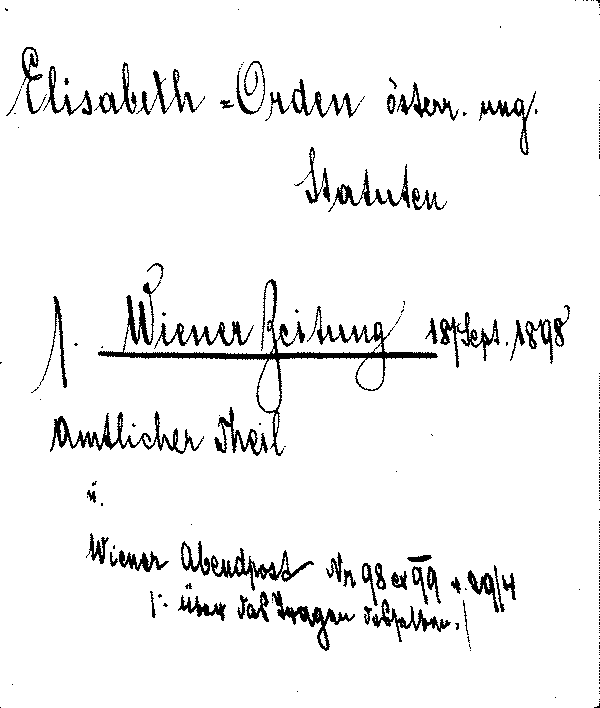 Elisabeth-Orden österr. ung.
Statuten
1. Wiener Zeitung 18/Sept. 1898
Amtlicher Theil
u.
Wiener Abendpost Nr 98 ex 99 v. 29/4
/: über das Tragen desselben. /